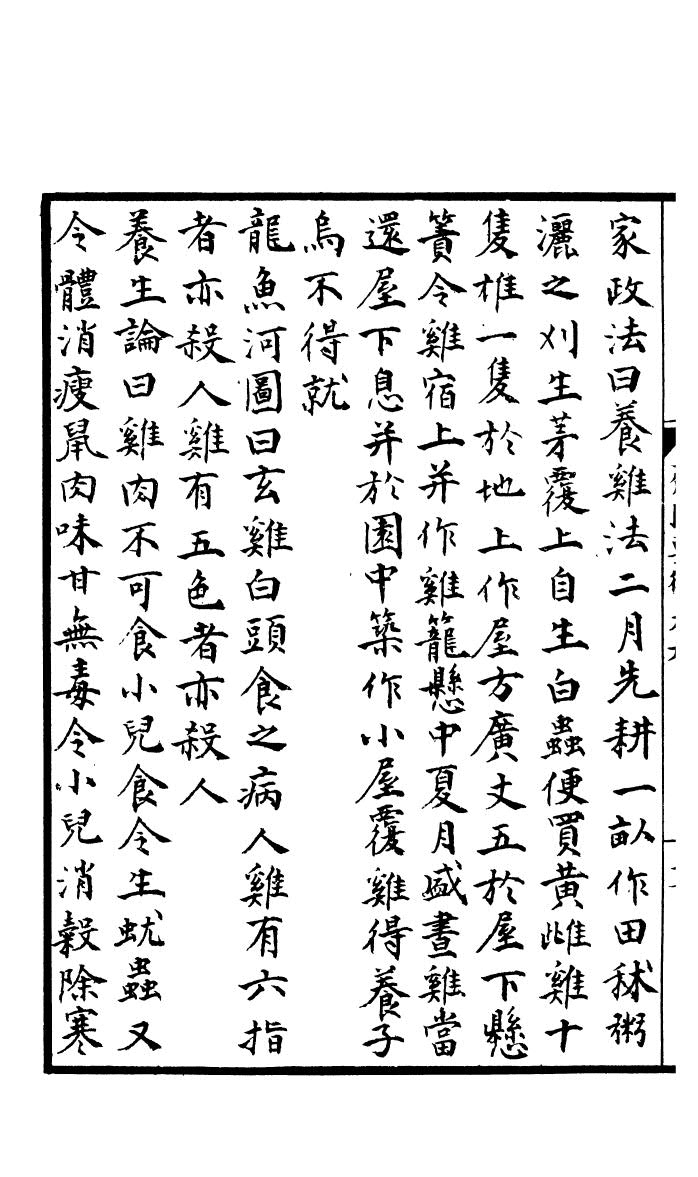 家政法曰養雞法二月先耕一畝作田秫粥
灑之刈生茅覆上自生白蟲便買黃雌雞十
隻雄一隻於地上作屋方廣丈五於屋下懸
簀令雞宿上并作雞籠懸中夏月盛晝雞當
還屋下息并於園中築作小屋覆雞得養子
烏不得就
龍魚河圖曰玄雞白頭食之病人雞有六指
者亦殺人雞有五色者亦殺人
養生論曰雞肉不可食小兒食令生蚘蟲又
令體消瘦鼠肉味甘無毒令小兒消穀除寒